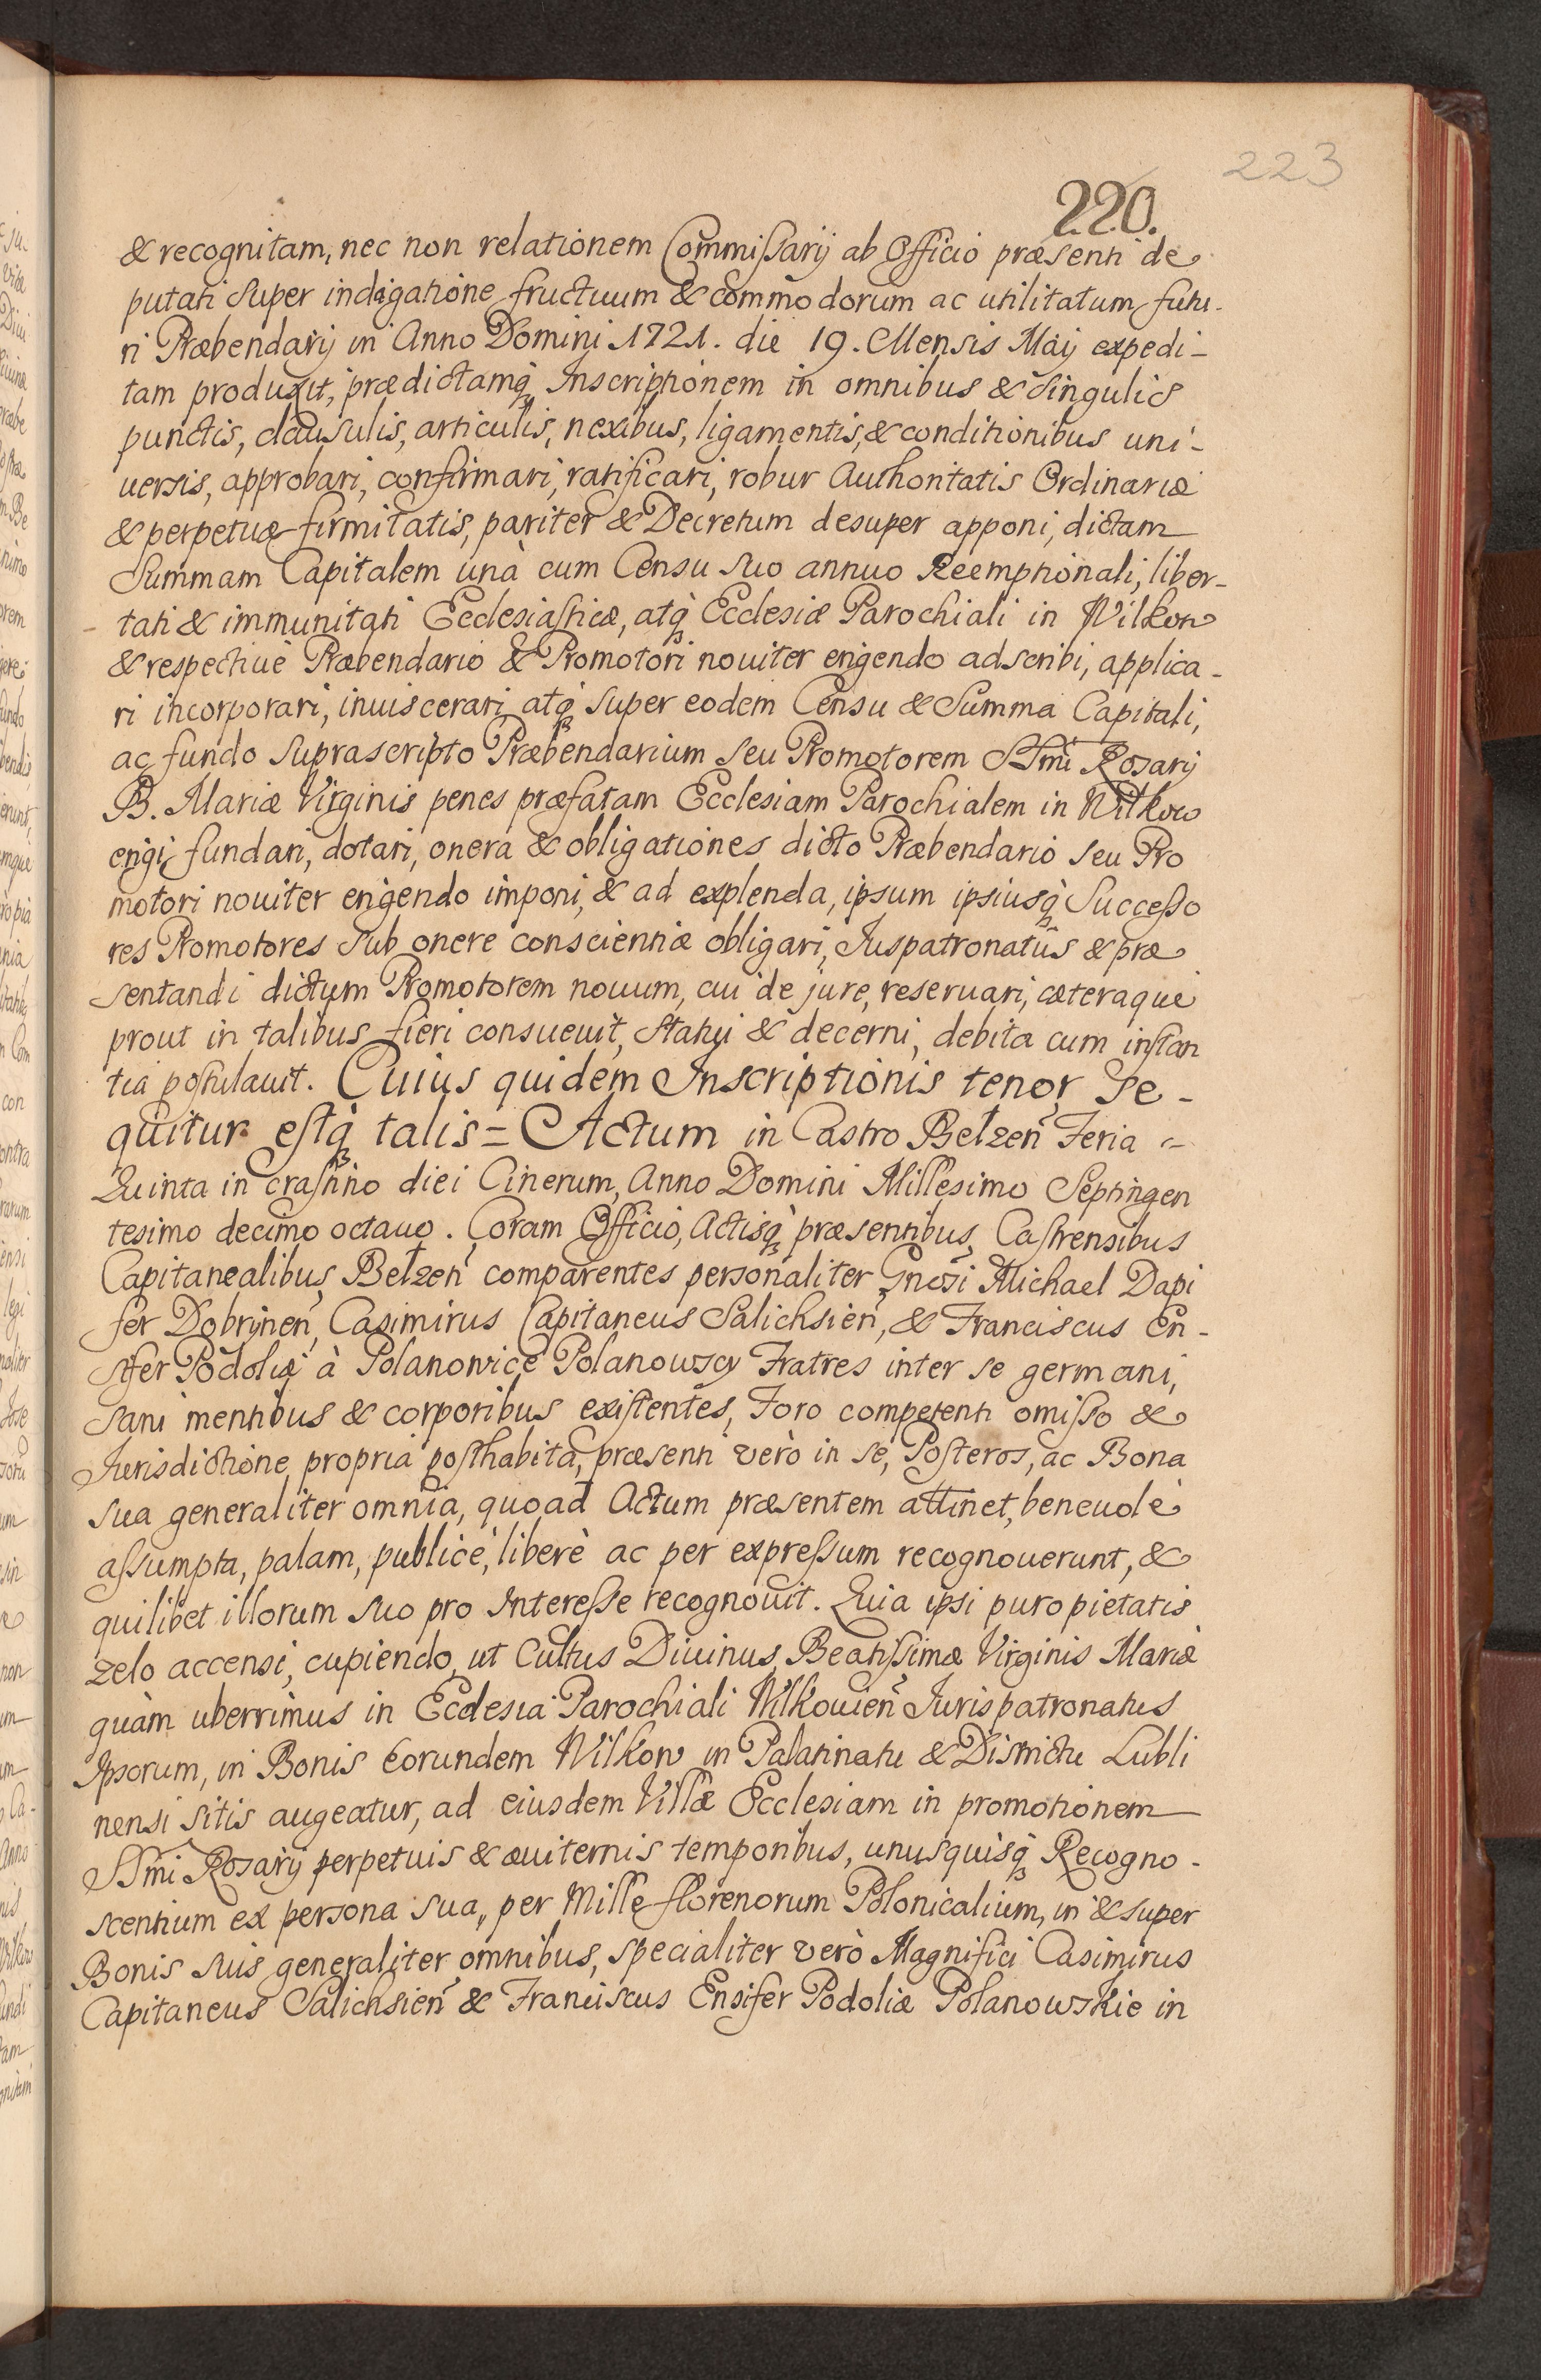 223
220.
& recognitam, nec non relationem Commißarij ab Officio præsenti de
putati super indagatione fructuum & commodorum ac utilitatum futu-
ri Præbendarij in Anno Domini 1721. die 19. Mensis Maij expedi-
tam produxit, prædictamq̃ Inscriptionem in omnibus & singulis
punctis, clausulis, articulis, nexibus, ligamentis, & conditionibus uni-
uersis, approbari, confirmari, ratificari, robur Authoritatis Ordinariæ
& perpetuæ firmitatis, pariter & Decretum desuper apponi, dictam
Summam Capitalem unà cum Censu suo annuo Reemptionali, liber-
tati & immunitati Ecclesiasticæ, atq̃ Ecclesiæ Parochiali in Wilkow
& respectiuè Præbendario & Promotori nouiter erigendo adscribi, applica-
ri incorporari, inuiscerari, atq̃ super eodem Censu & Summa Capitali,
ac fundo suprascripto Præbendarium seu Promotorem SSmi Rosarij
B. Mariæ Virginis penes præfatam Ecclesiam Parochialem in Wilkow
erigi, fundari, dotari, onera & obligationes dicto Præbendario seu Pro
motori nouiter erigendo imponi, & ad explenda, ipsum ipsiusq̃ Succeßo
res Promotores sub onere conscientiæ obligari, Iuspatronatûs & præ
sentandi dictum Promotorem nouum, cui de jure, reseruari, cæteraque
prout in talibus fieri consueuit, statui & decerni, debita cum instan
tia postulauit. Cuius quidem Inscriptionis tenor se-
quitur estq̃ talis = Actum in Castro Bełzen̄ Feria =
Quinta in crastino diei Cinerum, Anno Domini Millesimo Septingen
tesimo decimo octauo. Coram Officio, Actisq̃ præsentibus, Castrensibus
Capitanealibus, Bełzen̄ comparentes personaliter Gnosi Michael Dapi
fer Dobrynen̄, Casimirus Capitaneus Salichsien̄, & Franciscus En-
sifer Podoliæ à Polanowice Polanowscy Fratres inter se germani,
sani mentibus & corporibus existentes, Foro competenti omißo &
Iurisdictione propria posthabita, præsenti verò in se, Posteros, ac Bona
sua generaliter omnia, quoad Actum præsentem attinet, beneuolè
aßumpta, palam, publicè, liberè ac per expreßum recognouerunt, &
quilibet illorum suo pro Intereße recognouit. Quia ipsi puro pietatis
zelo accensi, cupiendo, ut Cultus Diuinus, Beatißimæ Virginis Mariæ
quàm uberrimus in Ecclesia Parochiali Wilkouien̄ Iurispatronatus
Ipsorum, in Bonis Eorundem Wilkow in Palatinatu & Districtu Lubli
nensi sitis augeatur, ad eiusdem Villæ Ecclesiam in promotionem
SSmi Rosarij perpetuis & æuiternis temporibus, unusquisq̃ Recogno-
scentium ex persona sua, per Mille florenorum Polonicalium, in & super
Bonis suis generaliter omnibus, specialiter verò Magnifici Casimirus
Capitaneus Salichsien̄ & Franciscus Ensifer Podoliæ Polanowskie in